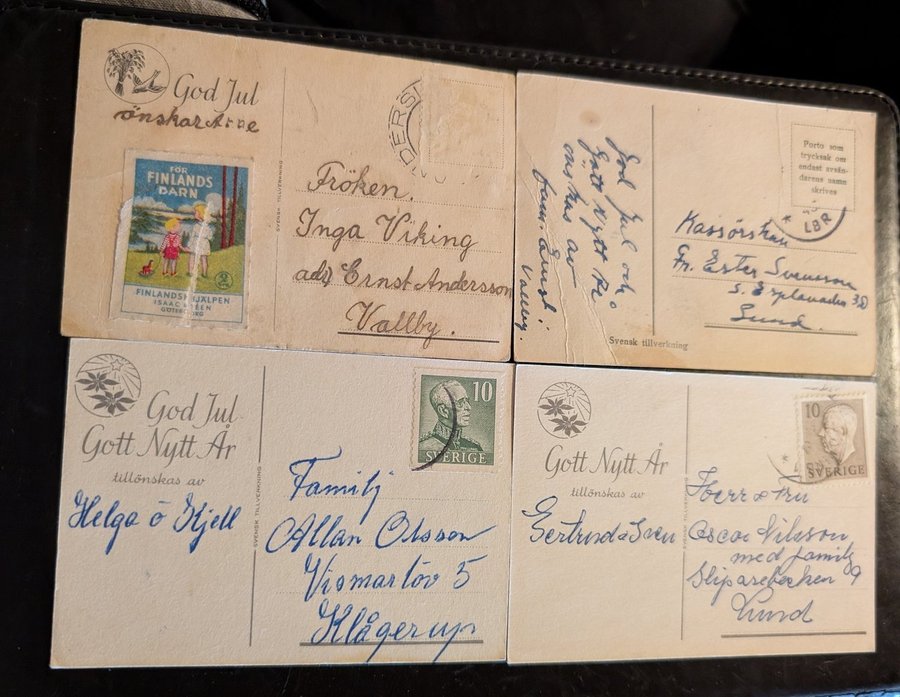 God Jul
önskar Arne
FÖR
FINLANDS
BARN
FINLANDSHJÄLPEN
GÖTEBORG
SVENSK TILLVERKNING
Fröken
Inga Viking
adr Ernst Andersson
Vallby.
God Jul och
Gott Nytt År
önskas av
Vallby
Svensk tillverkning
Porto som
trycksak om
endast avsän-
darens namn
skrives
LBR
Kassörskan
Fr. Ester Svensson
S. Esplanaden 3D
Lund.
God Jul
Gott Nytt År
tillönskas av
Helga o Kjell
SVENSK TILLVERKNING
10
SVERIGE
Familj
Allan Olsson
Vismarlöv 5
Klågerup
Gott Nytt År
tillönskas av
Gertrud o Sven
SVENSK TILLVERKNING
10
SVERIGE
Herr o Fru
Oscar Nilsson
med familj
Lund